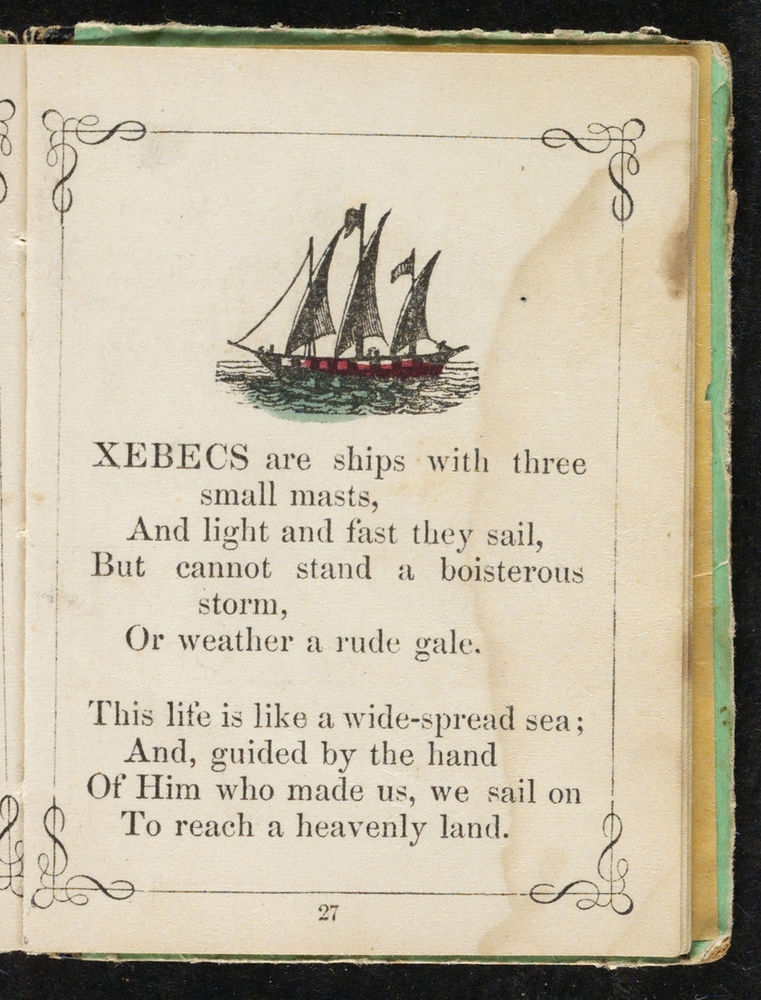 XEBECS are ships with three
small masts,
And light and fast they sail,
But cannot stand a boisterous
storm,
Or weather a rude gale.
This life is like a wide-spread sea;
And, guided by the hand
Of Him who made us, we sail on
To reach a heavenly land.
27